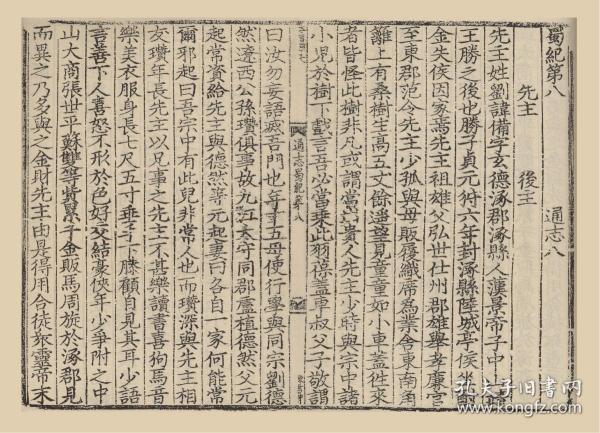 蜀紀第八
先主 後主 通志八
先主姓劉諱備字玄德涿郡涿縣人漢景帝子中山靖
王勝之後也勝子貞元狩六年封涿縣陸城亭侯坐酎
金失侯因家焉先主祖雄父弘世仕州郡雄舉孝廉官
至東郡范令先主少孤與母販履織席為業舍東南角
籬上有桑樹生高五丈餘遙望見童童如小車蓋往來
者皆怪此樹非凡或謂當出貴人先主少時與宗中諸
小兒於樹下戲言吾必當乘此羽葆蓋車叔父子敬謂
曰汝勿妄語滅吾門也年十五母使行學與同宗劉德
然遼西公孫瓚俱事故九江太守同郡盧植德然父元
起常資給先主與德然等元起妻曰各自一家何能常
爾邪起曰吾宗中有此兒非常人也而瓚深與先主相
友瓚年長先主以兄事之先主不甚樂讀書喜狗馬音
樂美衣服身長七尺五寸垂手下膝顧自見其耳少語
言善下人喜怒不形於色好交結豪俠年少爭附之中
山大商張世平蘇雙等貲累千金販馬周旋於涿郡見
而異之乃多與之金財先主由是得用合徒衆靈帝末
通志蜀紀卷八
孔夫子旧书网
www.kongfz.com